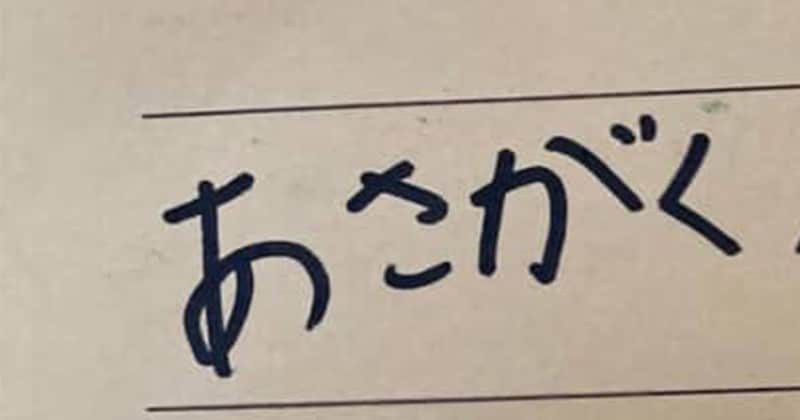 あさがく